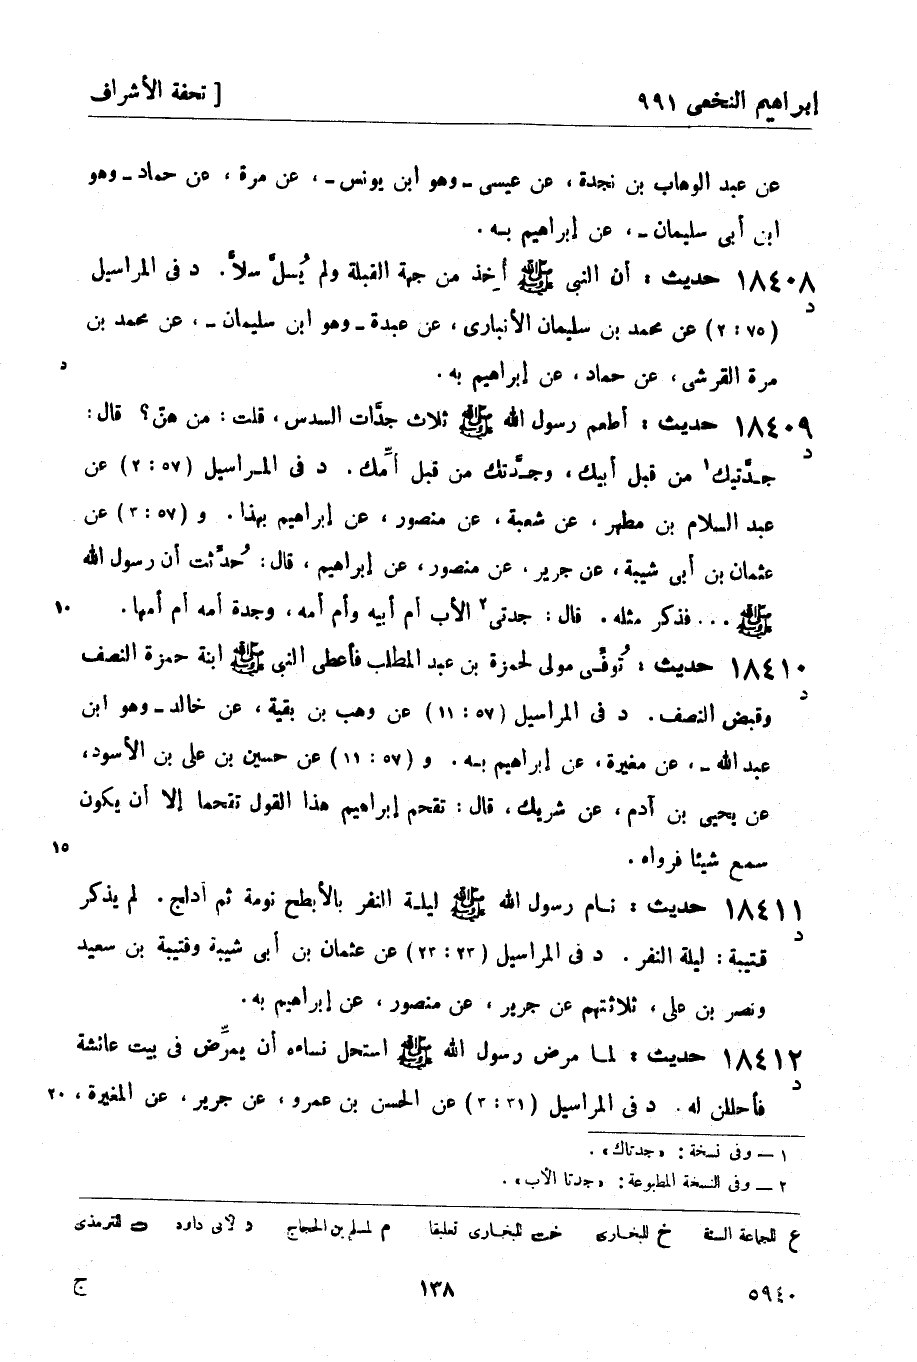 إبراهيم النخعى ٩٩١ [ تحفة الأشراف
عن عبد الوهاب بن نجدة ، عن عيسى ــ وهو ابن يونس ــ ، عن مرة ، عن حماد ــ وهو
ابن أبى سليمان ــ ، عن إبراهيم به .
١٨٤٠٨ حديث : أن النبى ﷺ أُخِذ من جهة القبلة ولم يُسلَّ سلاًّ . د فى المراسيل
د
(٧٥ : ٢) عن محمد بن سليمان الأنبارى ، عن عبدة ــ وهو ابن سليمان ــ ، عن محمد بن
مرة القرشى ، عن حماد ، عن إبراهيم به . د
١٨٤٠٩ حديث : أطعم رسول الله ﷺ ثلاث جدَّات السدس ، قلت : من هنّ؟ قال :
د
جدَّتيك١ من قبل أبيك ، وجدَّتك من قبل أمِّك . د فى المراسيل (٥٧ : ٢) عن
عبد السلام بن مطهر ، عن شعبة ، عن منصور ، عن إبراهيم بهذا . و (٥٧ : ٣) عن
عثمان بن أبى شيبة ، عن جرير ، عن منصور ، عن إبراهيم ، قال : حُدِّثت أن رسول الله
ﷺ ... فذكر مثله . قال : جدتى٢ الأب أم أبيه وأم أمه ، وجدة أمه أم أمها . ١٠
١٨٤١٠ حديث : تُوفِّى مولى لحمزة بن عبد المطلب فأعطى النبى ﷺ ابنة حمزة النصف
د
وقبض النصف . د فى المراسيل (٥٧ : ١١) عن وهب بن بقية ، عن خالد ــ وهو ابن
عبد الله ــ ، عن مغيرة ، عن إبراهيم به . و (٥٧ : ١١) عن حسين بن على بن الأسود ،
عن يحيى بن آدم ، عن شريك ، قال : تقحم إبراهيم هذا القول تقحما إلا أن يكون
سمع شيئا فرواه . ١٥
١٨٤١١ حديث : نام رسول الله ﷺ ليلة النفر بالأبطح نومة ثم أدلج . لم يذكر
د
قتيبة : ليلة النفر . د فى المراسيل (٢٣ : ٢٣) عن عثمان بن أبى شيبة وقتيبة بن سعيد
ونصر بن على ، ثلاثتهم عن جرير ، عن منصور ، عن إبراهيم به .
١٨٤١٢ حديث : لما مرض رسول الله ﷺ استحل نساءه أن يمرَّض فى بيت عائشة
د
فأحللن له . د فى المراسيل (٣١ : ٣) عن الحسن بن عمرو ، عن جرير ، عن المغيرة ، ٢٠
١ ــ وفى نسخة : «جدتاك» .
٢ ــ وفى النسخة المطبوعة : «جدتا الأب» .
ع للجماعة الستة خ للبخارى خت للبخارى تعليقا م لمسلم بن الحجاج د لأبى داود ت للترمذى
٥٩٤٠ ١٣٨ ج